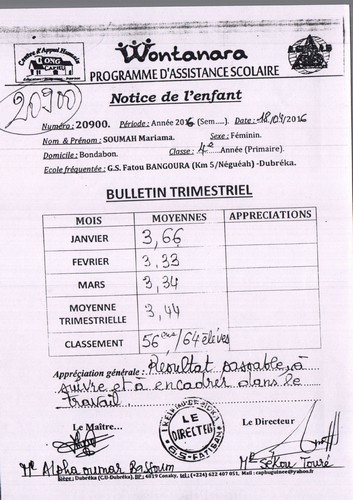 Centre d'Appui Humain
ONG
CAPHU
Wontanara
PROGRAMME D'ASSISTANCE SCOLAIRE
20900
Notice de l'enfant
Numéro : 20900. Période : Année 2016 (Sem.....). Date : 18/04/2016
Nom & Prénom : SOUMAH Mariama. Sexe : Féminin.
Domicile : Bondabon. Classe : 4e Année (Primaire).
Ecole fréquentée : G.S. Fatou BANGOURA (Km 5/Néguéah) -Dubréka.
BULLETIN TRIMESTRIEL
MOIS MOYENNES APPRECIATIONS
JANVIER 3,66
FEVRIER 3,33
MARS 3,34
MOYENNE TRIMESTRIELLE 3,44
CLASSEMENT 56ème/64 élèves
Appréciation générale : Résultat passable, à
suivre et à encadrer dans le
travail
Le Maître... Le Directeur
LE
DIRECTEUR
Mr Alpha oumar Bassoum Mr Sékou Touré
Siège : Dubréka (C.U-Dubréka), BP : 4019 Conakry, Tel: (+224) 622 407 051, Mail: caphuguinee@yahoo.fr